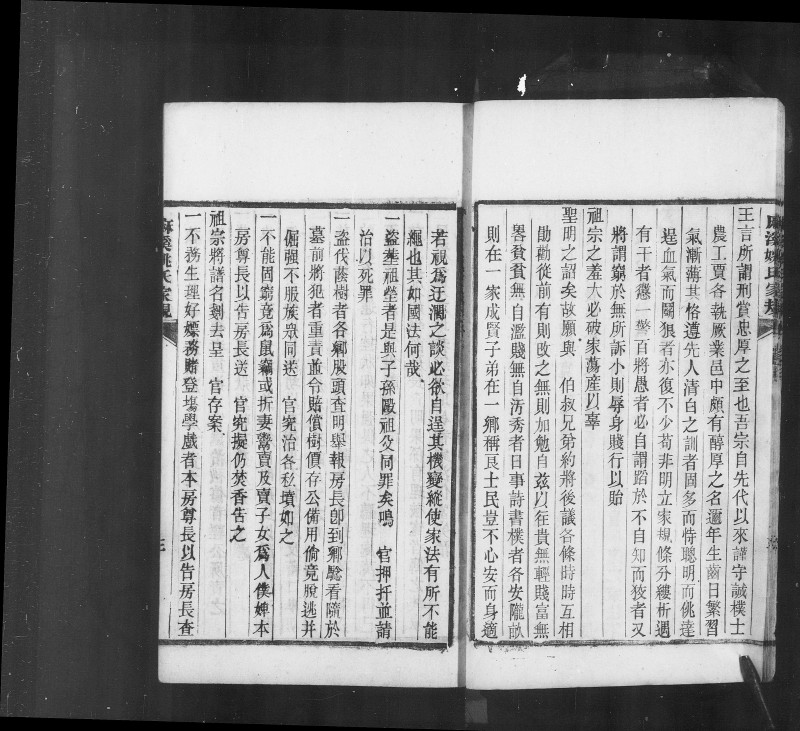 麻溪姚氏家規
王言所謂刑賞忠厚之至也吾宗自先代以來謹守誠樸士
農工賈各執厥業邑中頗有醇厚之名邇年生齒日繁習
氣漸薄其恪遵先人清白之訓者固多而恃聰明而佻達
逞血氣而鬬狠者亦復不少苟非明立家規條分縷析遇
有干者懲一警百將愚者必自謂蹈於不自知而狡者又
將謂窮於無所訴小則辱身賤行以貽
祖宗之羞大必破家蕩產以辜
聖明之詔矣故願與 伯叔兄弟約將後議各條時時互相
勖勸從前有則改之無則加勉自茲以往貴無輕賤富無
畧貧貧無自濫賤無自汚秀者日事詩書樸者各安隴畝
則在一家成賢子弟在一鄉稱良士民豈不心安而身適
若視為迂濶之談必欲自逞其機變縱使家法有所不能
繩也其如國法何哉
一盜塟祖塋者是與子孫毆祖父同罪矣鳴 官押扦並請
治以死罪
一盜伐蔭樹者各鄉股頭查明舉報房長卽到鄉騐看隨於
墓前將犯者重責並令賠償樹價存公備用倘竟脫逃并
倔强不服族衆同送 官究治各私墳如之
一不能固窮竟為鼠竊或折妻鬻賣及賣子女為人僕婢本
房尊長以告房長送 官究擬仍焚香告之
祖宗將譜名剗去呈 官存案
一不務生理好嫖務賭登塲學戲者本房尊長以告房長查
麻溪姚氏家規